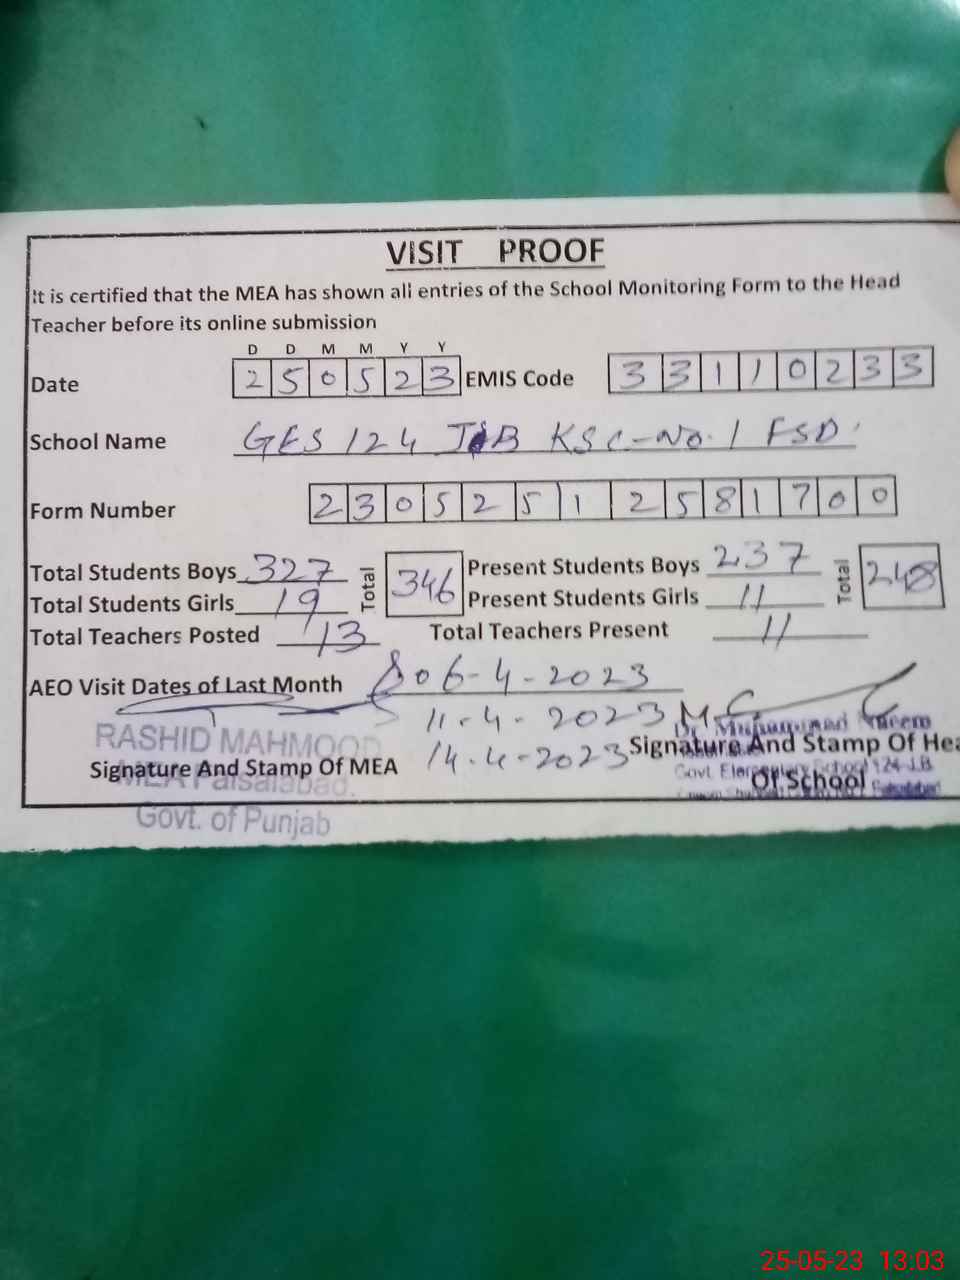 VISIT PROOF
It is certified that the MEA has shown all entries of the School Monitoring Form to the Head
Teacher before its online submission
D D M M Y Y
Date 2 5 0 5 2 3 EMIS Code 3 3 1 1 0 2 3 3
School Name GES 124 JB KSC-No. 1 FSD
Form Number 2 3 0 5 2 5 1 2 5 8 1 7 0 0
Total Students Boys 327 Total 346 Present Students Boys 237 Total 248
Total Students Girls 19 Present Students Girls 11
Total Teachers Posted 13 Total Teachers Present 11
AEO Visit Dates of Last Month 06-4-2023
11-4-2023
14-4-2023
RASHID MAHMOOD
Signature And Stamp Of MEA
MEA Faisalabad.
Govt. of Punjab
Dr. Muhammad Naeem
Signature And Stamp Of Hea
Govt. Elementary School 124-J.B.
Of School
25-05-23 13:03